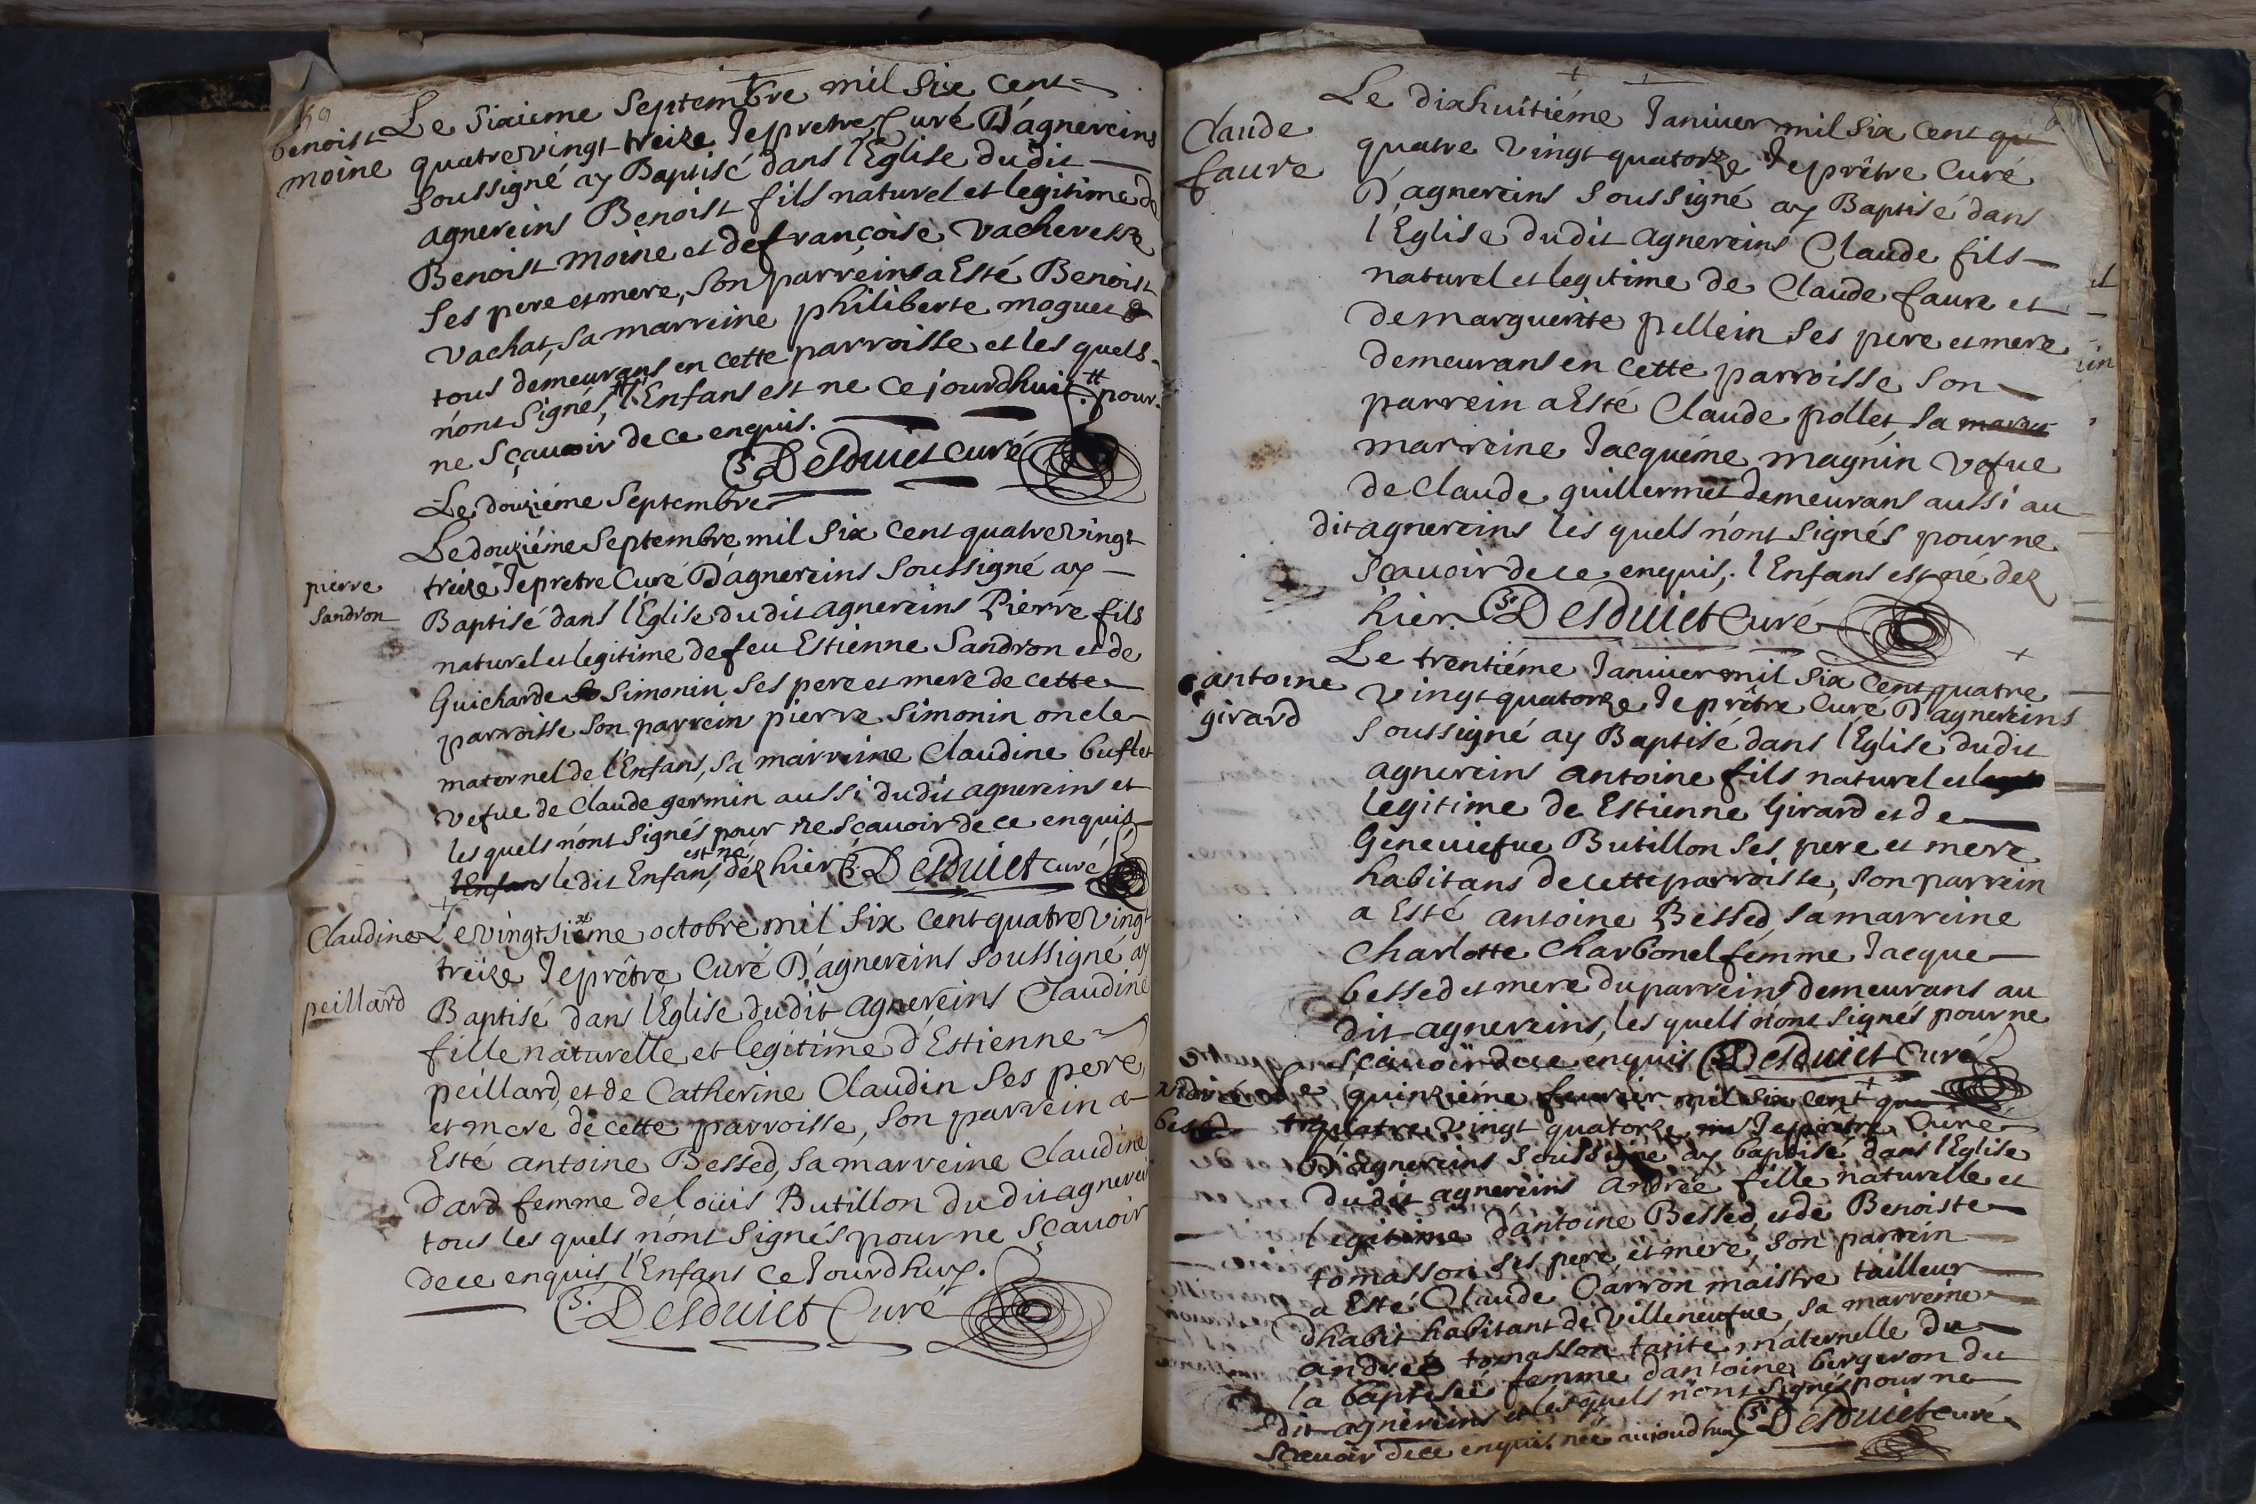 benoist
moine
Le Sixieme Septembre mil Six Cent
quatrevingt treize Je pretre Curé D'agnereins
Soussigné ay Baptisé dans l'Eglise dudit
agnereins Benoist fils naturel et legitime de
Benoist moine et de françoise Vacheresse
Ses pere et mere, Son parreins a Esté Benoist
Vachat, Sa marreine philiberte moguet
tous demeurans en cette parroisse et les quels
n'ont Signés, l'Enfans est ne ce jourdhuit pour
ne Sçauoir de ce enquis.
Desduiet curé
Le douziéme Septembre
pierre
Sandron
Le douziéme Septembre mil Six Cent quatrevingt
treize Je pretre Curé D'agnereins Soussigné ay
Baptisé dans l'Eglise dudit agnereins Pierre fils
naturel et legitime de feu Estienne Sandron et de
Guicharde Simonin Ses pere et mere de cette
parroisse Son parrein pierre Simonin oncle
maternel de l'Enfans, Sa marreine Claudine buflet
vefue de Claude germin aussi dudit agnereins et
les quels n'ont Signés pour ne Scauoir de ce enquis
l'Enfans le dit Enfans est né dez hier Desduiet curé
Claudine
peillard
Le vingt Sixeme octobre mil Six Cent quatre vingt
treize Je prêtre Curé D'agnereins Soussigné ay
Baptisé dans l'Eglise dudit agnereins Claudine
fille naturelle et legitime d'Estienne
peillard, et de Catherine Claudin Ses pere
et mere de cette parroisse, Son parrein a
Esté antoine Bessed, Sa marreine Claudine
Dard femme de loüis Butillon du dit agnerein
tous les quels n'ont Signés pour ne Scauoir
de ce enquis l'Enfans ce Jourdhuy.
Desduiet Curé
Claude
faure
Le dixhuitiéme Januier mil Six Cent qu
quatre Vingt quatorze Je prêtre Curé
D'agnereins Soussigné ay Baptisé dans
l'Eglise dudit agnereins Claude fils
naturel et legitime de Claude faure et
de marguerite pellein Ses pere et mere
demeurans en cette parroisse Son
parrein a Esté Claude pollet, Sa
marreine Jacquéme magnin vefue
de Claude guillermet demeurans aussi au
dit agnereins les quels n'ont Signés pour ne
Scauoir de ce enquis, l'Enfans est né dez
hier. Desduiet Curé
antoine
girard
Le trentiéme Januier mil Six Cent quatre
Vingt quatorze Je prêtre Curé D'agnereins
Soussigné ay Baptisé dans l'Eglise dudit
agnereins antoine fils naturel et
legitime de Estienne Girard et de
Geneuiefue Butillon Ses pere et mere
habitans de cette parroisse, Son parrein
a Esté antoine Bessed, Sa marreine
Charlotte Charbonel femme Jacque
bessed et mere du parrein demeurans au
dit agnereins, les quels n'ont Signés pour ne
Scauoir de ce enquis Desduiet Curé
Le quinziéme feurier mil Six cent
quatre vingt quatorze Je prêtre Curé
D'agnereins Soussigné ay baptisé dans l'Eglise
dudit agnereins andrée fille naturelle et
legitime d'antoine Bessed, et de Benoiste
tomasson Ses pere et mere, Son parrein
a Esté Claude Carron maistre tailleur
d'habit habitant de Villeneufue, Sa marreine
andrée tomasson tante maternelle du
la baptisée femme d'antoine bergeron du
dit agnereins et les quels n'ont Signés pour ne
Scauoir de ce enquis née aujourdhuy Desduiet curé